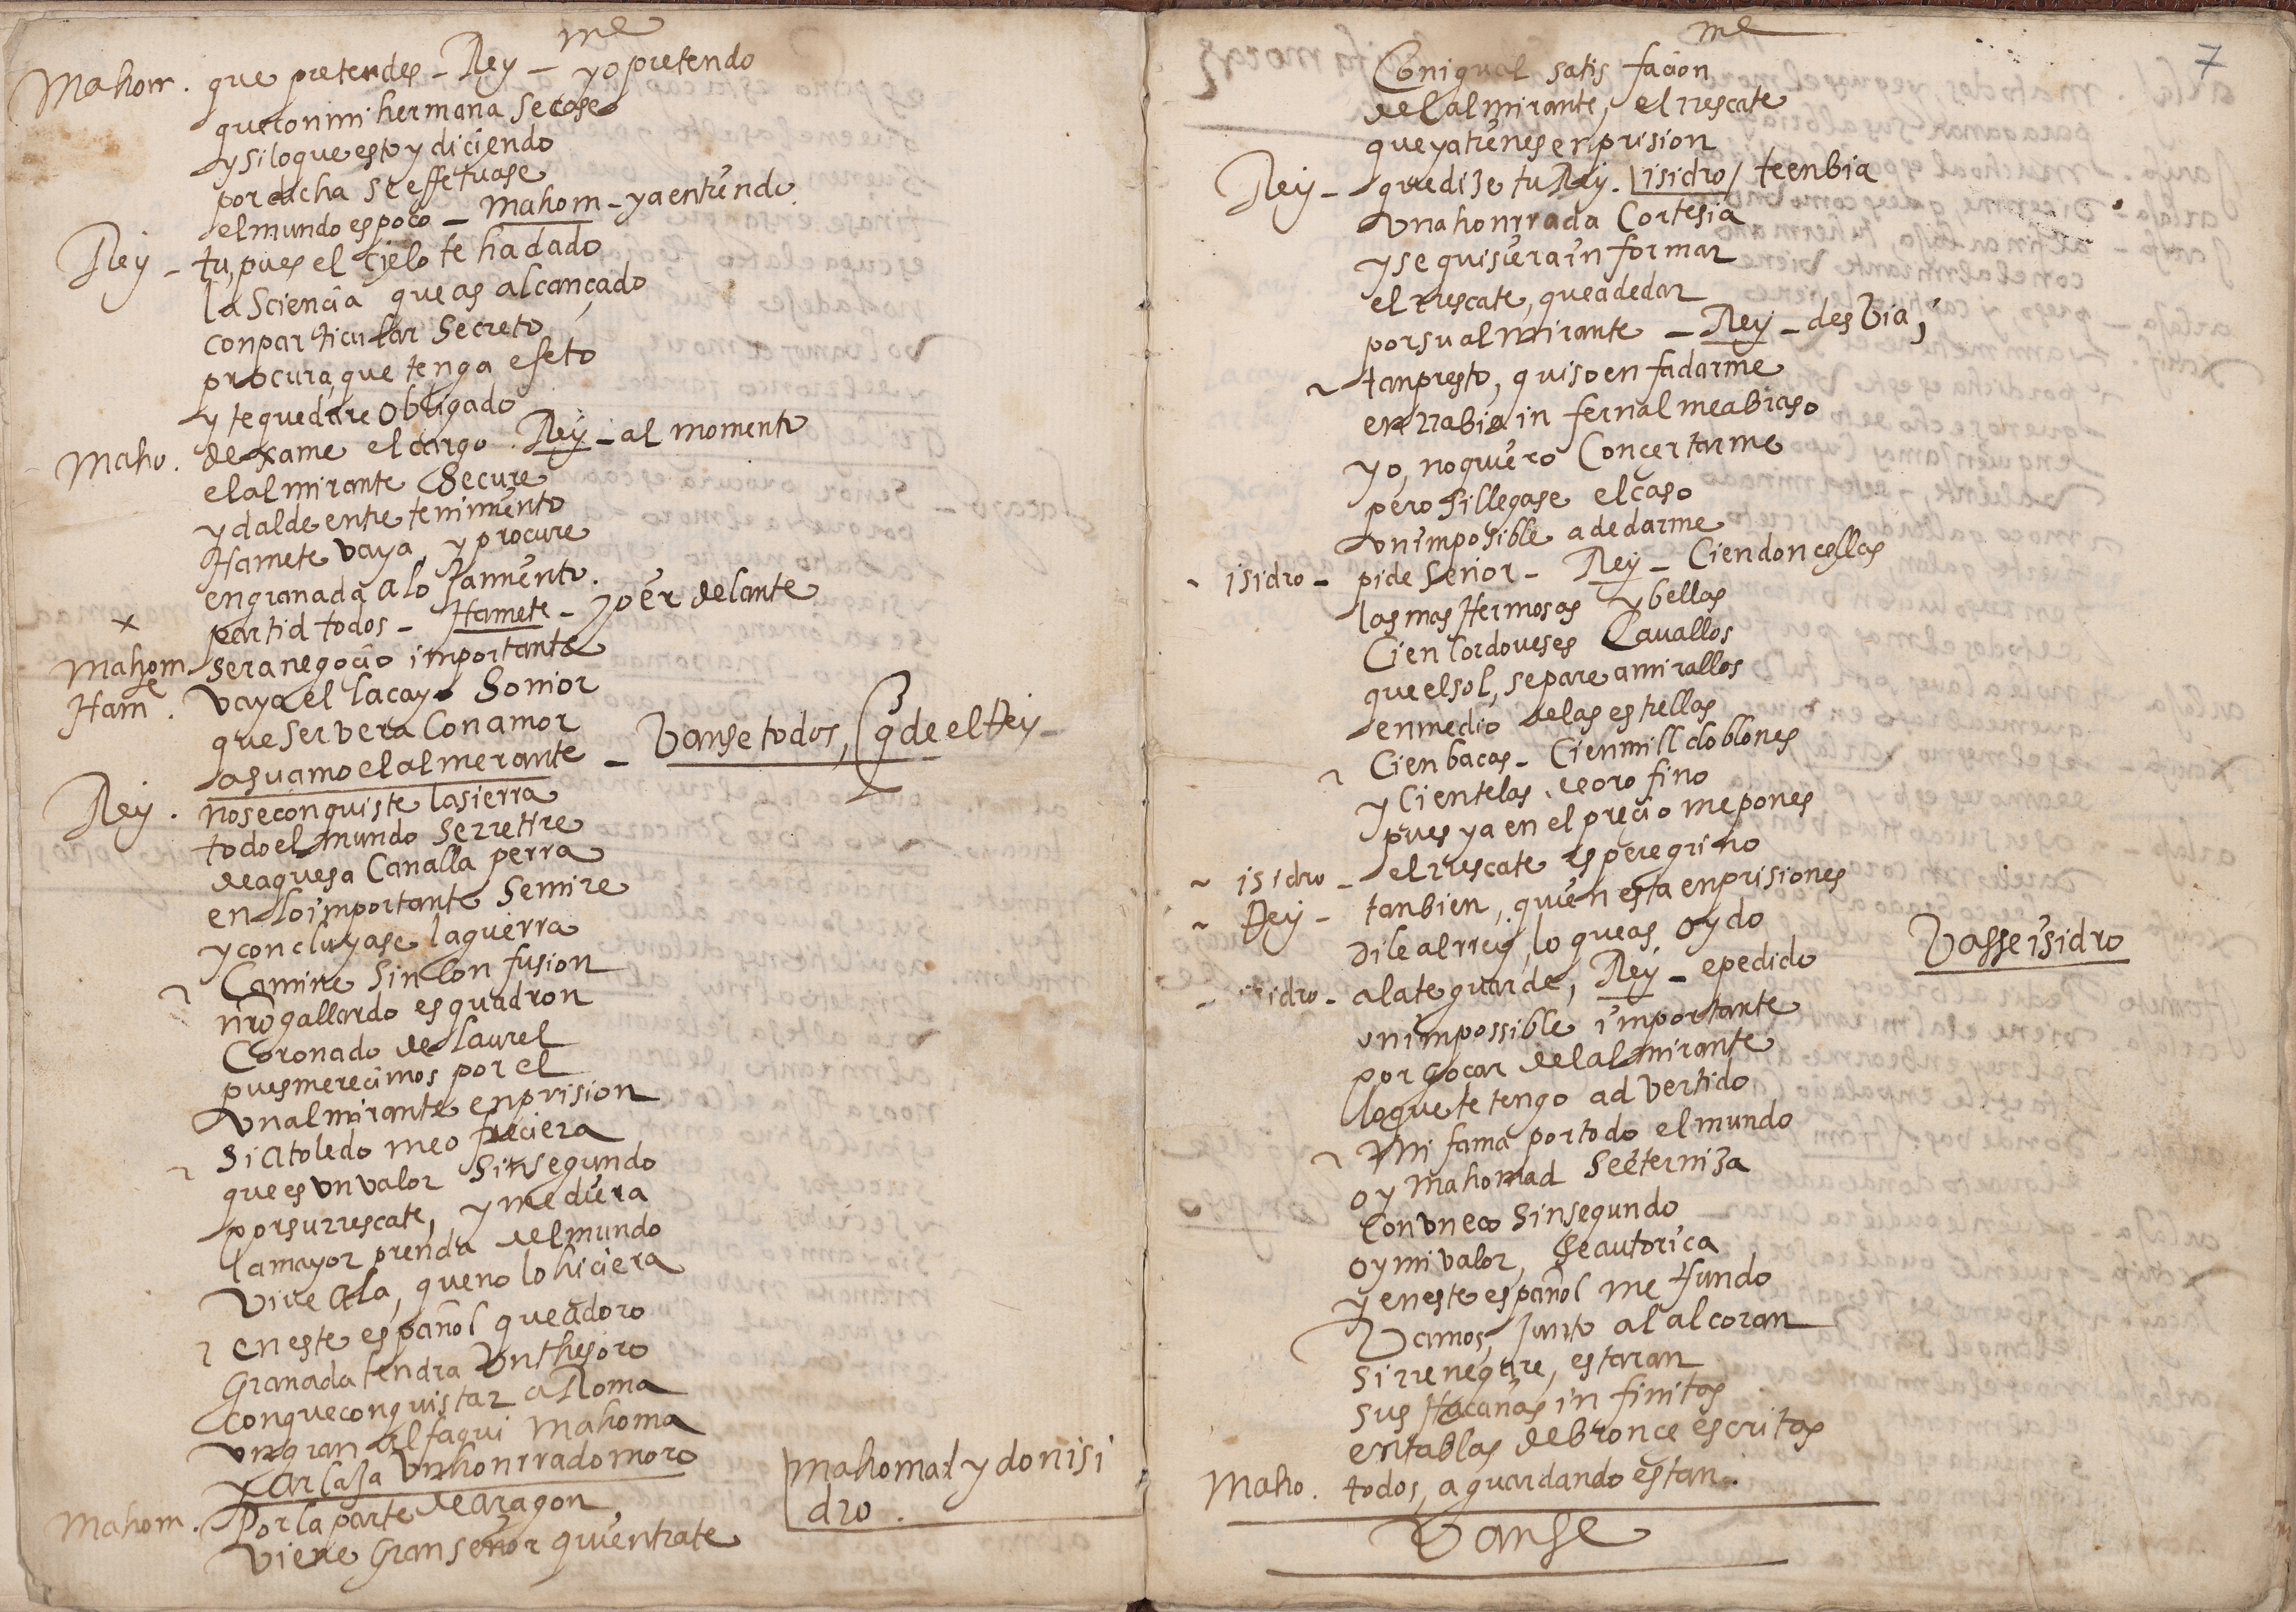 me
Mahom. que pretendes - Rey - yo pretendo
que con mi hermana se case
y si lo que estoy diciendo
por dicha se effetuase
el mundo es poco - Mahom - ya entiendo.
Rey - tu, pues el cielo te ha dado
la Sciencia que as alcançado
con particular Secreto
procura, que tenga efeto
y te quedare obligado
Maho. dexame el cargo. Rey - al momento
el almirante Se cure
y dalde entretenimiento
Hamete vaya, y procure
en granada alojamiento.
partid todos - Hamete - yo er delante
Mahom sera negocio importante
Ham.e vaya el lacayo Sonior
que ser vera Con amor
a su amo el almerante - Vanse todos, q de el Rey -
Rey. no se conquiste la sierra
todo el mundo Se rretire
de aquesa Canalla perra
en lo importante Se mire
y concluyase la guerra
Camine Sin Confusion
nro gallardo esquadron
Coronado de laurel
pues merecimos por el
un almirante en prision
Si a toledo me ofreciera
que es un valor Sin segundo
por su rrescate, y me diera
la mayor prenda del mundo
Vive Ala, que no lo hiciera
en este español que adoro
Granada tendra Un thesoro
con que conquistar a Roma
un gran alfaqui Mahoma
y Arlaja un honrrado moro
Mahom. Por la parte de aragon
mahomad y don isi
dro.
Viene Gran señor quien trate
me
7
Con igual satisfacion
del almirante, el rrescate
que ya tienes en prision
Rey - que dize tu Rey. isidro / te enbia
una honrrada Cortesia
y se quisiera informar
el rrescate, que a de dar
por su almirante - Rey - desbia,
tan presto, quiso enfadarme
en rrabia infernal me abraso
yo, no quiero Concertarme
pero si llegase el caso
un imposible a de darme
isidro - pide Señor - Rey - Cien doncellas
las mas Hermosas y bellas
Cien Cordoveses Cauallos
que el sol, se pare a mirallos
en medio de las estrellas
Cien bacas - Cien mill doblones
y Cien telas de oro fino
pues ya en el precio me pones
isidro - el rrescate es peregrino
Rey - tanbien, quien esta en prisiones
Dile al rrey, lo que as oydo
idro - ala te guarde, Rey - e pedido
Vasse isidro
un impossible importante
por goçar del almirante
lo que te tengo advertido
Mi fama por todo el mundo
oy Mahomad Se eterniza
Con un eco Sin segundo
oy mi valor, Se autoriça
y en este español me fundo
Vamos, Junto al alcoran
si rrenegare, estaran
sus Haçañas infinitas
en tablas de bronce escritas
Maho. todos, aguardando estan.
Vanse